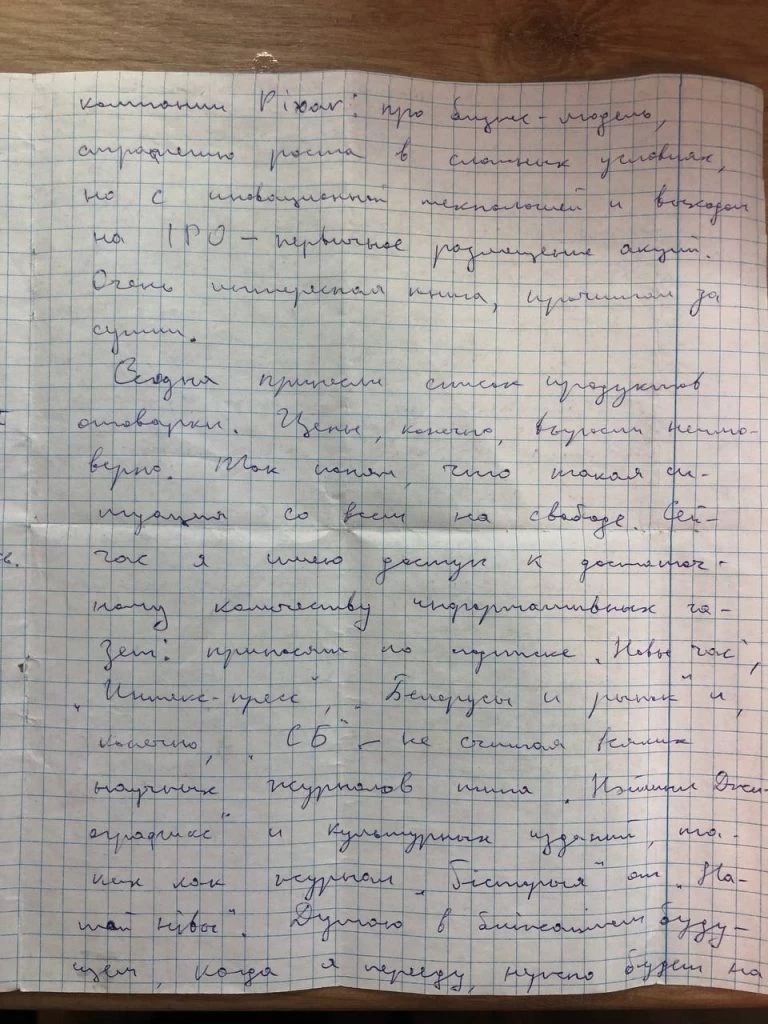 компании Pixar: про бизнес-модель,
стратегию роста в сложных условиях,
но с инновационной технологией и выходом
на IPO – первичное размещение акций.
Очень интересная книга, прочитал за
сутки.
Сегодня принесли список продуктов
отоварки. Цены, конечно, выросли неимо-
верно. Так понял, что такая си-
туация со всем на свободе. Сей-
час я имею доступ к достаточ-
ному количеству информативных га-
зет: приносят по подписке „Новы час",
„Интекс-пресс", „Белорусы и рынок" и,
конечно, „СБ" – не считая всяких
научных журналов типа „Нэйшнл Джи-
ографикс" и культурных изданий, та-
ких как журнал „Гісторыя" от „На-
шай нівы". Думаю в ближайшем буду-
щем, когда я перееду, нужно будет на